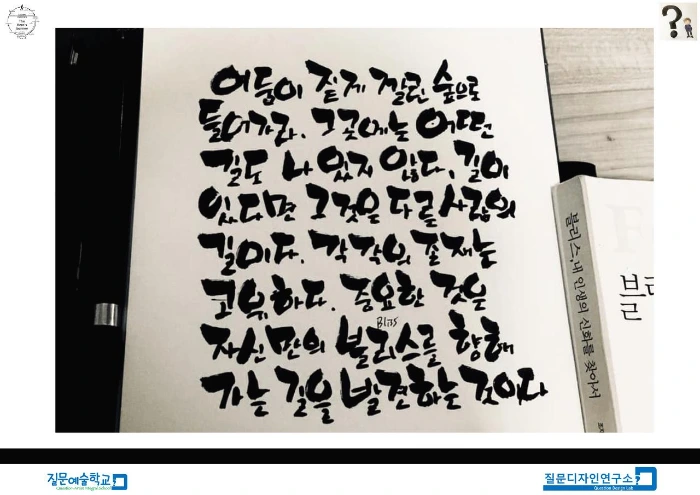 어둠이 짙게 깔린 숲으로
들어가라. 그곳에는 어떤
길도 나 있지 않다. 길이
있다면 그것은 다른 사람의
길이다. 각각의 존재는
고유하다. 중요한 것은
자신만의 블리스를 향해
Bliss
가는 길을 발견하는 것이다
블리스, 내 인생의 신화를 찾아서
블리
질문예술학교
질문디자인연구소
Question Design Lab